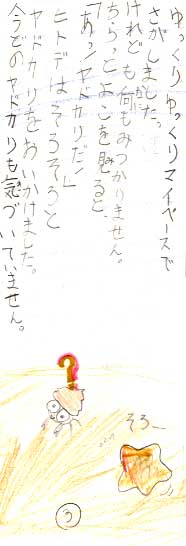 ゆっくりゆっくりマイペースで
さがしました。
けれども何もみつかりません。
ちらっとよこを見ると、
「あっ!ヤドカリだ!」
ヒトデはそろそろと
ヤドカリをおいかけました。
今どのヤドカリも気づいていません。
?
そろ〜
③